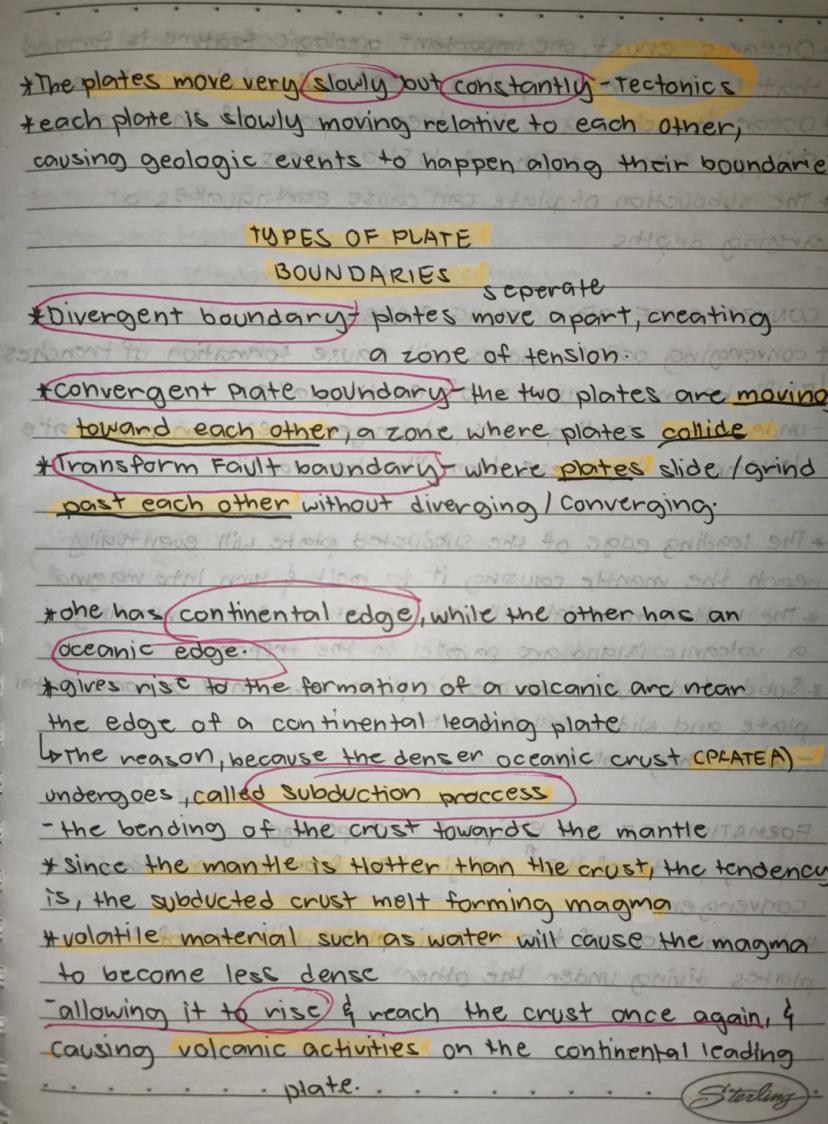 *The plates move very slowly but constantly - Tectonics
*each plate is slowly moving relative to each other,
causing geologic events to happen along their boundarie
TYPES OF PLATE
BOUNDARIES
seperate
*Divergent boundary - plates move apart, creating
a zone of tension.
*Convergent Plate boundary - the two plates are moving
toward each other, a zone where plates collide
*Transform Fault baundary - where plates slide / grind
past each other without diverging / converging.
*one has continental edge, while the other has an
oceanic edge.
*gives rise to the formation of a volcanic arc near
the edge of a continental leading plate
↳The reason, because the denser oceanic crust (PLATE A)
undergoes, called subduction proccess
- the bending of the crust towards the mantle
* since the mantle is Hotter than the crust, the tendency
is, the subducted crust melt forming magma
*volatile material such as water will cause the magma
to become less dense
-allowing it to rise & reach the crust once again, &
causing volcanic activities on the continental leading
plate.
Sterling